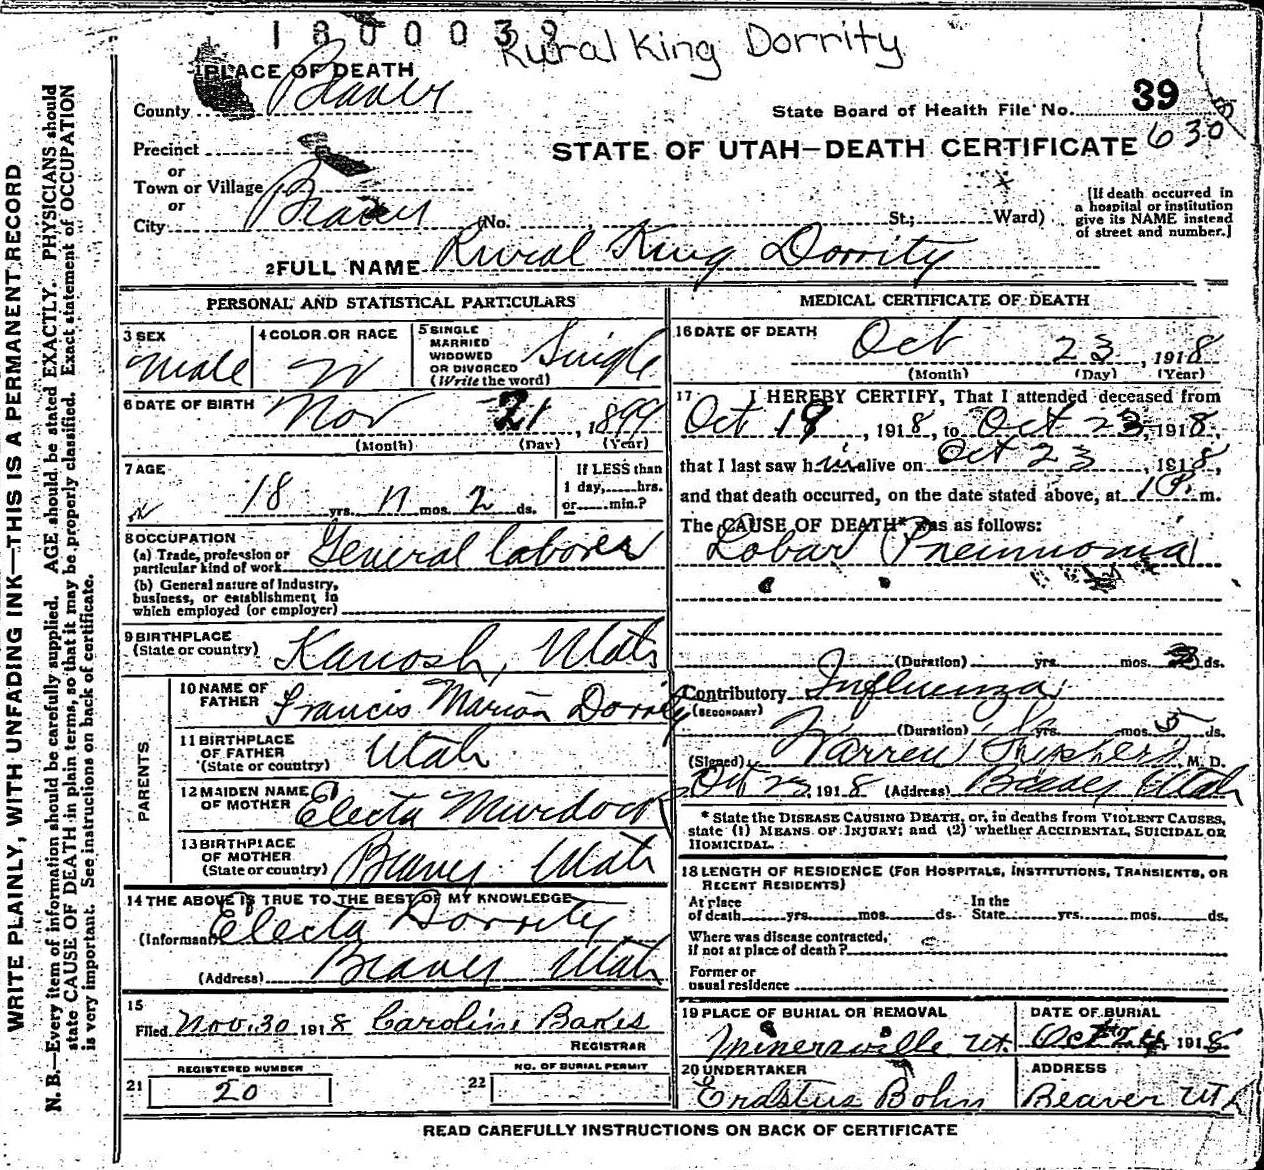 1800039
Rural King Dorrity
1 PLACE OF DEATH
County Beaver
State Board of Health File No. 39
630
Precinct
or
Town or Village
or
City Beaver (No. St.; Ward)
STATE OF UTAH—DEATH CERTIFICATE
[If death occurred in
a hospital or institution
give its NAME instead
of street and number.]
2 FULL NAME Rural King Dorrity
PERSONAL AND STATISTICAL PARTICULARS
3 SEX
Male
4 COLOR OR RACE
W
5 SINGLE
MARRIED
WIDOWED
OR DIVORCED
(Write the word)
Single
6 DATE OF BIRTH
Nov 21, 1899
(Month) (Day) (Year)
7 AGE
18 yrs. 11 mos. 2 ds.
If LESS than
1 day, hrs.
or min.?
8 OCCUPATION
(a) Trade, profession or
particular kind of work General laborer
(b) General nature of Industry,
business, or establishment in
which employed (or employer)
9 BIRTHPLACE
(State or country) Kanosh, Utah
PARENTS
10 NAME OF
FATHER Francis Marion Dorrity
11 BIRTHPLACE
OF FATHER
(State or country) Utah
12 MAIDEN NAME
OF MOTHER Electa Murdock
13 BIRTHPLACE
OF MOTHER
(State or country) Beaver Utah
14 THE ABOVE IS TRUE TO THE BEST OF MY KNOWLEDGE
(Informant Electa Dorrity
(Address) Beaver Utah
15
Filed Nov. 30 1918 Caroline Bakes
REGISTRAR
REGISTERED NUMBER
21 20
NO. OF BURIAL PERMIT
22
MEDICAL CERTIFICATE OF DEATH
16 DATE OF DEATH
Oct 23, 1918
(Month) (Day) (Year)
17 I HEREBY CERTIFY, That I attended deceased from
Oct 19, 1918, to Oct 23, 1918,
that I last saw him alive on Oct 23, 1918,
and that death occurred, on the date stated above, at 1 P. m.
The CAUSE OF DEATH* was as follows:
Lobar Pneumonia
(Duration) yrs. mos. ds.
Contributory Influenza
(SECONDARY)
(Duration) yrs. mos. 5 ds.
(Signed) Warren M. D.
Oct 23, 1918 (Address) Beaver Utah
* State the DISEASE CAUSING DEATH, or, in deaths from VIOLENT CAUSES,
state (1) MEANS OF INJURY; and (2) whether ACCIDENTAL, SUICIDAL OR
HOMICIDAL.
18 LENGTH OF RESIDENCE (FOR HOSPITALS, INSTITUTIONS, TRANSIENTS, OR
RECENT RESIDENTS)
At place
of death yrs. mos. ds.
In the
State yrs. mos. ds.
Where was disease contracted,
if not at place of death?
Former or
usual residence
19 PLACE OF BURIAL OR REMOVAL
Minersville Ut.
DATE OF BURIAL
Oct 24, 1918
20 UNDERTAKER
Erastus Bohn
ADDRESS
Beaver Ut
READ CAREFULLY INSTRUCTIONS ON BACK OF CERTIFICATE
WRITE PLAINLY, WITH UNFADING INK—THIS IS A PERMANENT RECORD
N. B.—Every item of information should be carefully supplied. AGE should be stated EXACTLY. PHYSICIANS should
state CAUSE OF DEATH in plain terms, so that it may be properly classified. Exact statement of OCCUPATION
is very important. See instructions on back of certificate.